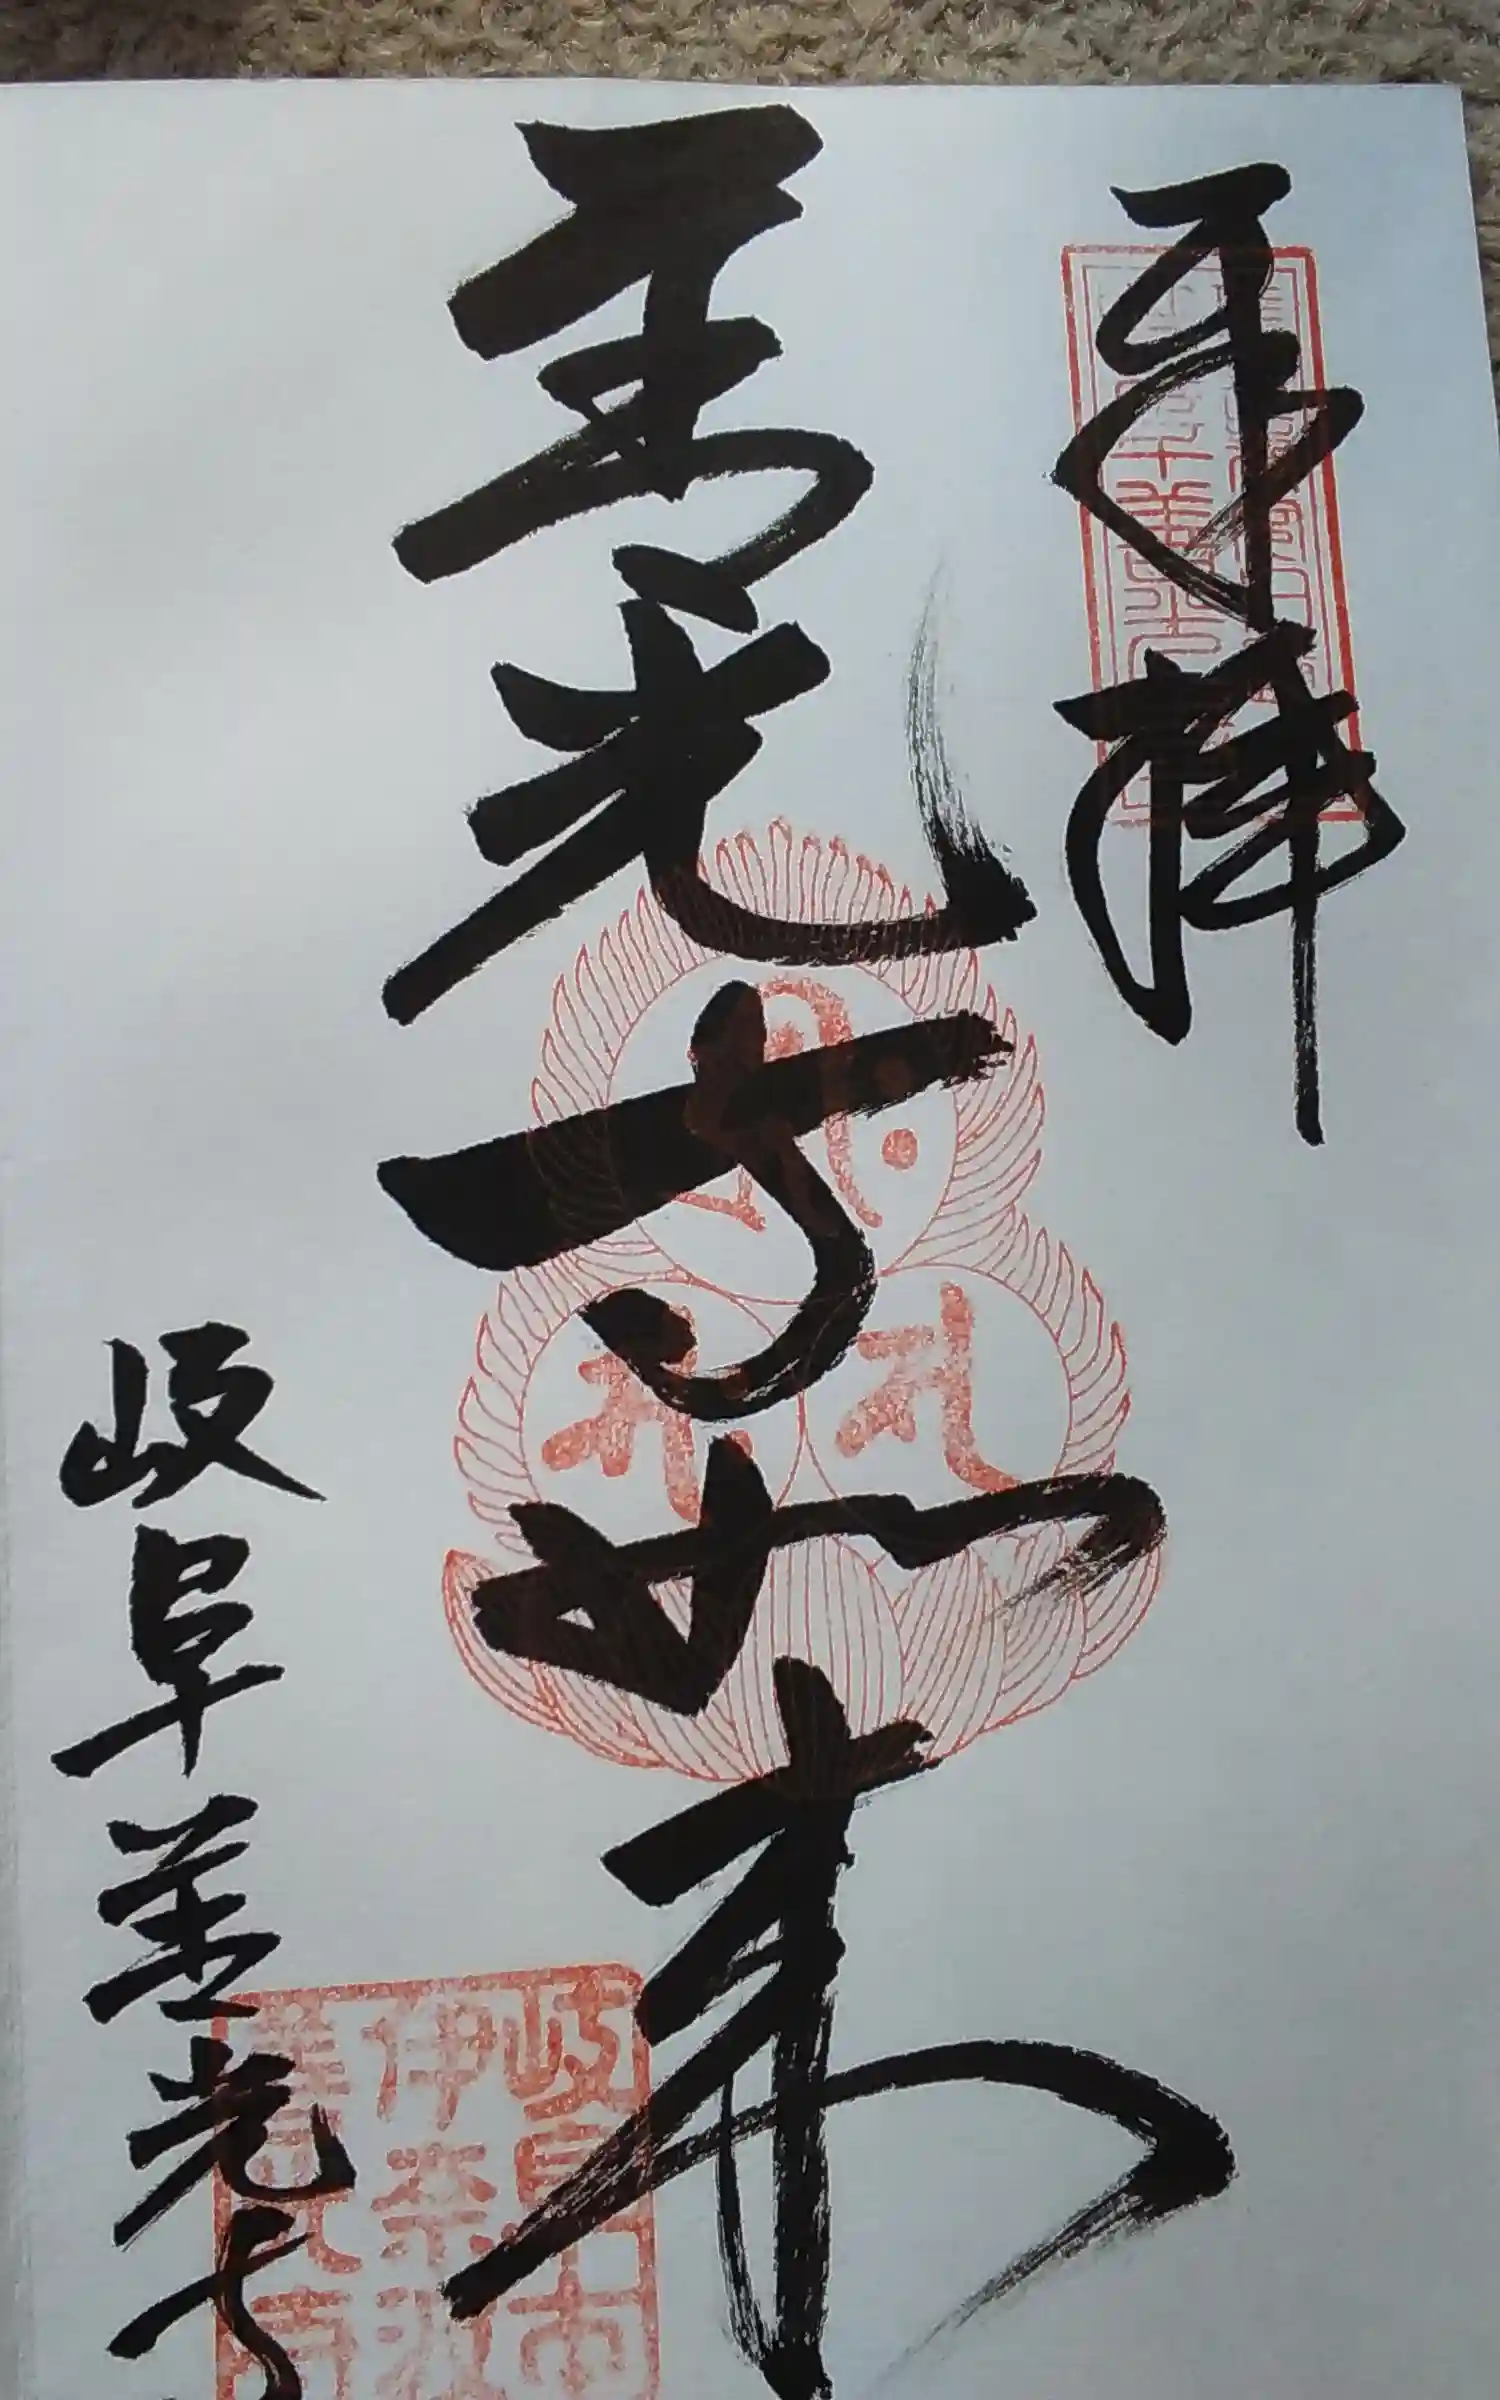 奉拝
善光寺如来
岐阜善光寺
岐阜市
伊奈波
善光寺